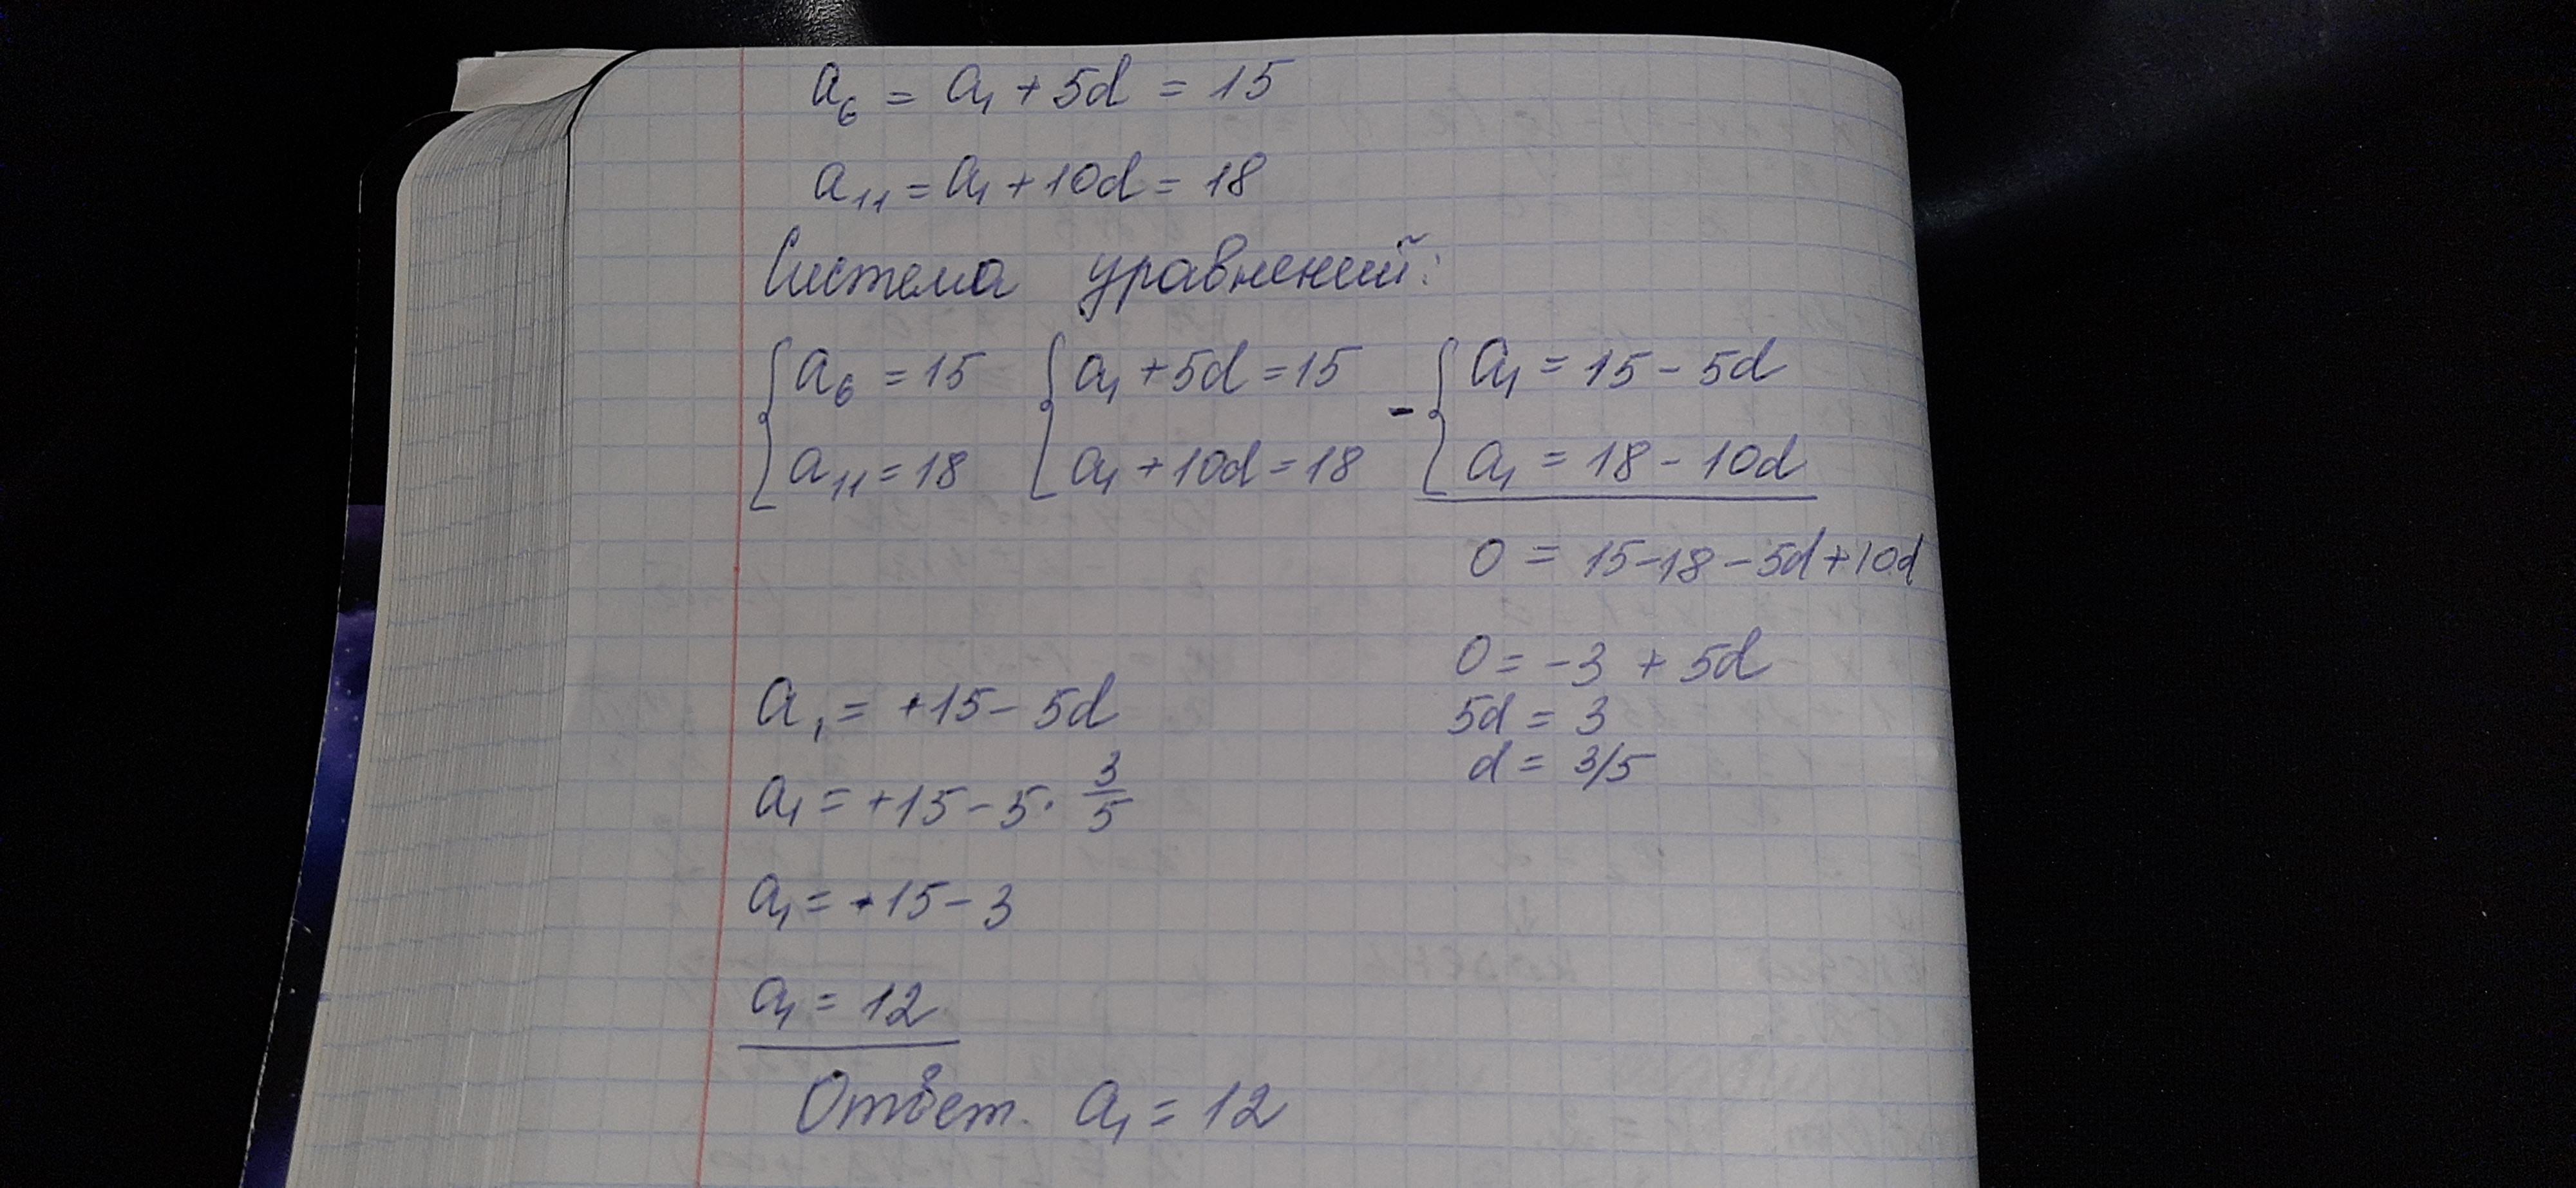 a₆ = a₁ + 5d = 15
a₁₁ = a₁ + 10d = 18
Система уравнений:
{ a₆ = 15 { a₁ + 5d = 15 - { a₁ = 15 - 5d
a₁₁ = 18 a₁ + 10d = 18 a₁ = 18 - 10d
0 = 15 - 18 - 5d + 10d
0 = -3 + 5d
5d = 3
d = 3/5
a₁ = +15 - 5d
a₁ = +15 - 5 · 3/5
a₁ = +15 - 3
a₁ = 12
Ответ. a₁ = 12